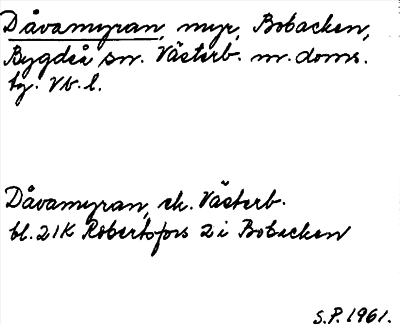 Dåvamyran, myr, Bobacken,
Bygdeå sn. Västerb. n. doms.
bg. Vb. l.
Dåvamyran, ek. Västerb.
bl. 21K Robertsfors 2 i Bobacken
S.P. 1961.